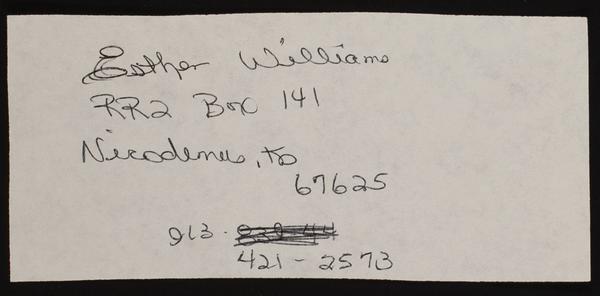 Esther Williams
RR2 Box 141
Nicodemus, Ks
67625
913-
421-2573